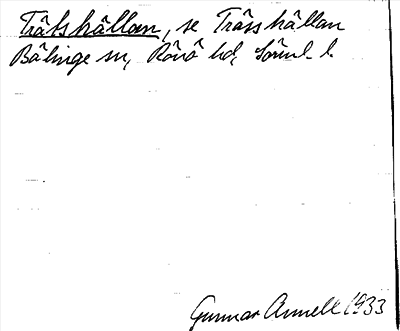 Träkshällan, se Trässhällan
Bälinge sn, Rönö hd, Sörml. l.
Gunnar Annell 1933